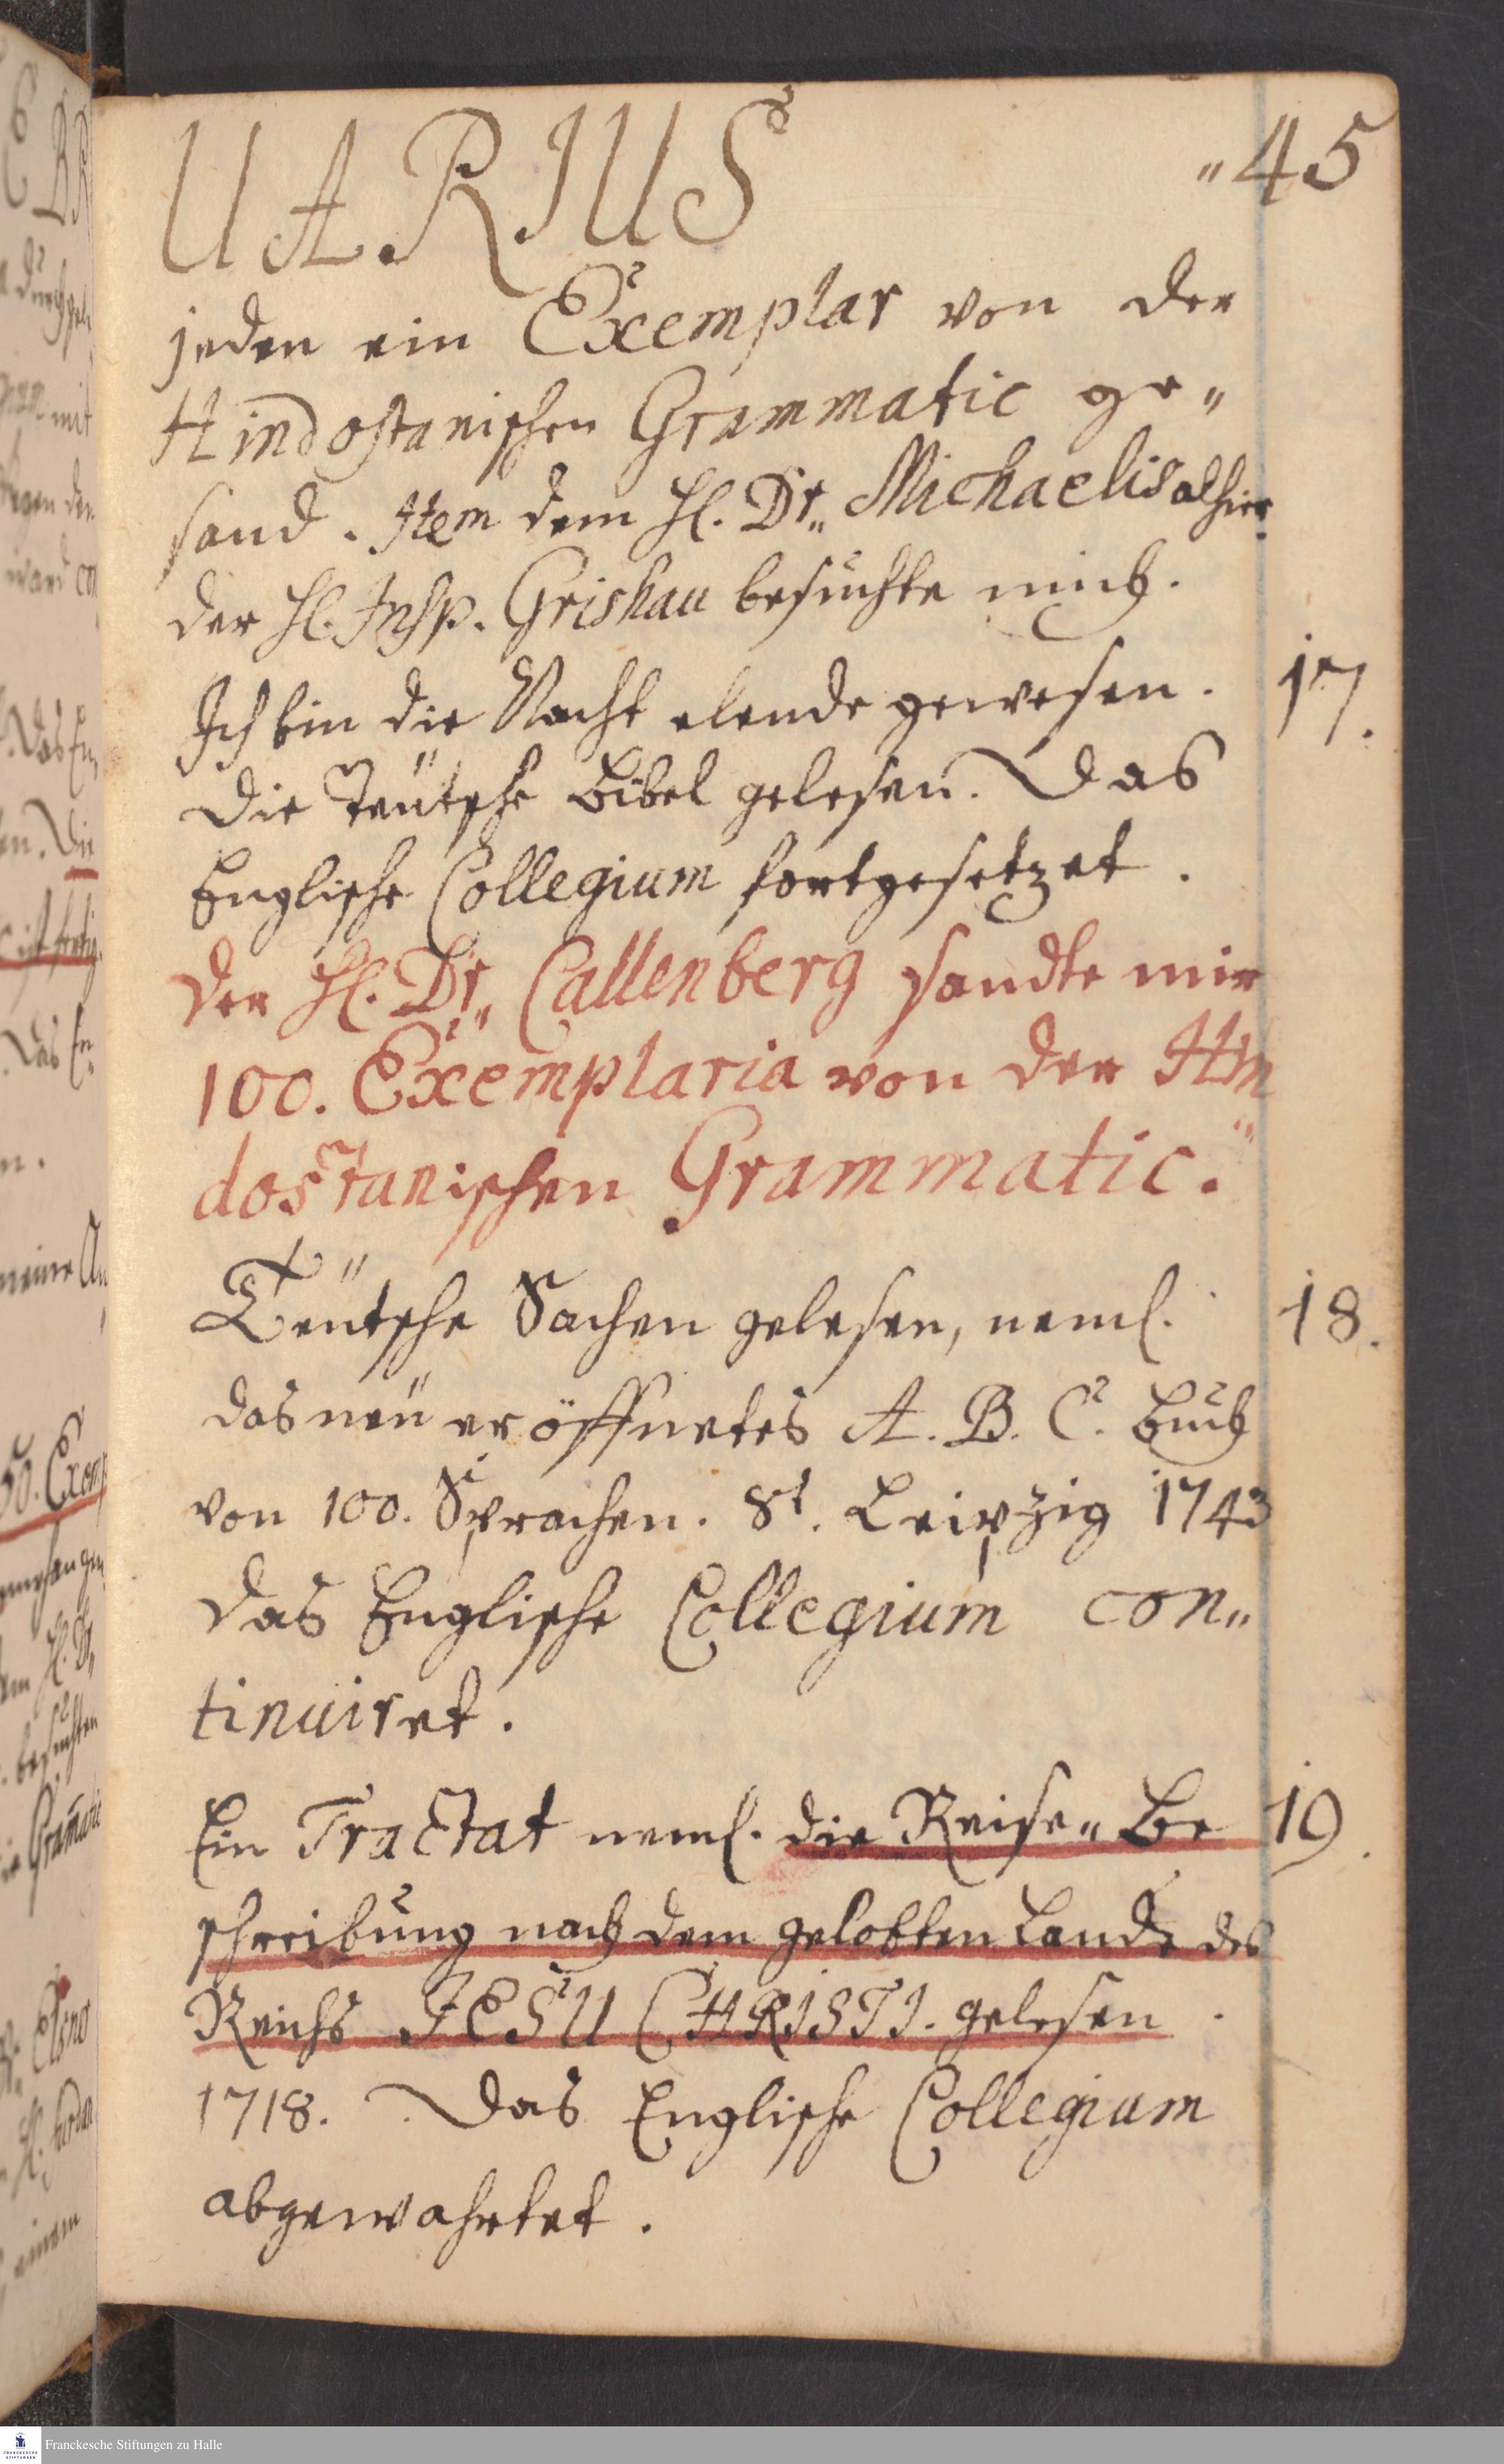 UARIUS „45
jeden ein Exemplar von der
Hindostanischen Grammatic ge„
sand. Item dem H. Dr„ Michaelis alhier.
der H. Insp. Grishau besuchte mich.
Ich bin die Nacht elende gewesen. 17.
Die Teütsche Bibel gelesen. Das
Englische Collegium fortgesetzet.
Der H. Dr„ Callenberg sandte mir
100. Exemplaria von der Hin
dostanischen Grammatic.
Teütsche Sachen gelesen, neml. 18.
das neü eröffnetes A. B. C. Buch
von 100. Sprachen. 8t. Leipzig 1743
Das Englische Collegium con„
tinuiret.
Ein Tractat neml. die Reise„Be 19.
schreibung nach dem gelobten Lande des
Reichs JESU CHRISTI. gelesen.
1718. Das Englische Collegium
abgewahrtet.
Franckesche Stiftungen zu Halle